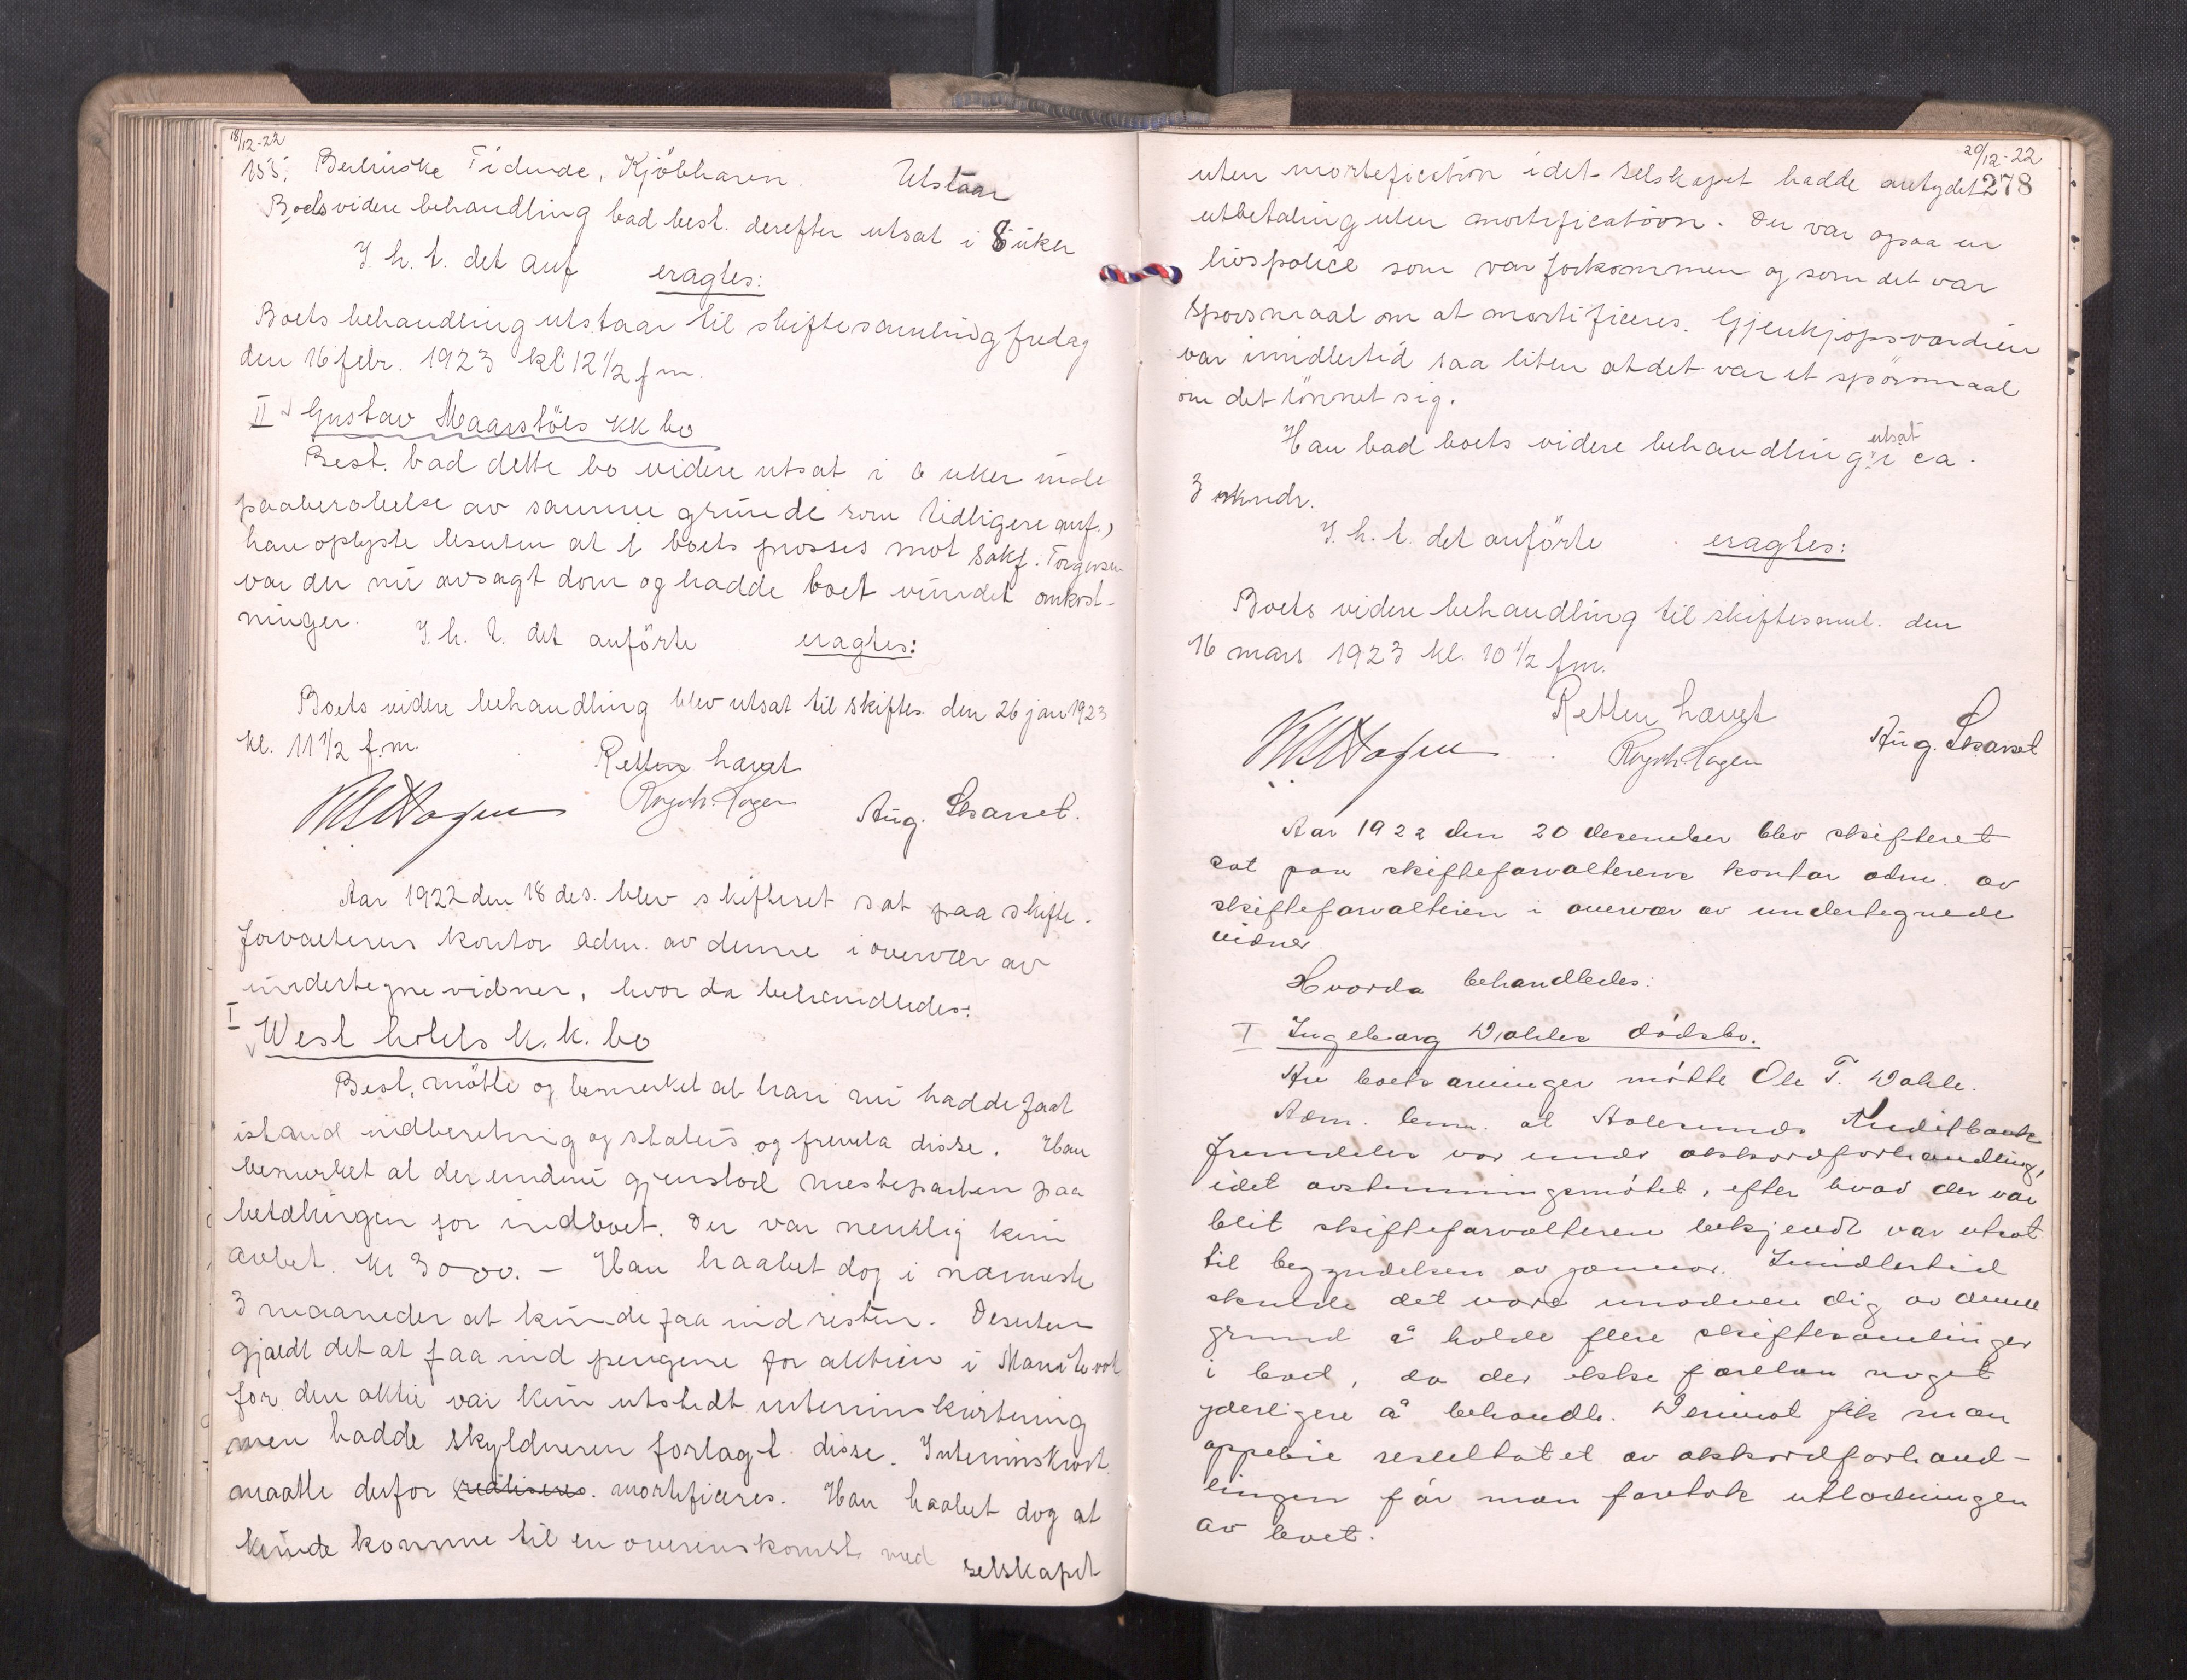 18/12-22
155. Berlinske Tidende, Kjöbhavn. Utstaar
Boets videre behandling bad best. derefter utsat i 8 uker
I. h. t. det anf eragtes:
Boets behandling utstaar til skiftesamling fredag
den 16 febr. 1923 kl 12 1/2 fm.
II Gustav Maarstöls kk bo
Best. bad dette bo videre utsat i 6 uker inde
paaberobelse av samme grunde som tidligere anf.,
han oplyste desuten at i boets prosses mot sakf. Torgersen
var der nu avsagt dom og hadde boet vundet omkost-
ninger. I. h. t. det anförte eragtes:
Boets videre behandling blev utsat til skiftes. den 26 jan 1923
kl. 11 1/2 f.m.
Retten hævet
Aug. Skarset.
Aar 1922 den 18 des. blev skifteret sat paa skifte-
forvalterens kontor adm. av denne i overvær av
undertegne vidner, hvor da behandledes:
I
West hotels k. k. bo
Best. mötte og bemerket at han nu hadde faat
istand indberetning og status og fremla disse. Han
bemerket at der endnu gjenstod mesteparten paa
betalingen for indboet. Der var nemlig kun
avbet. kr 3000.- Han haabet dog i nærmeste
3 maaneder at kunde faa ind resten. Desuten
gjældt det at faa ind pengene for aktien i
for den aktie var kun utstedt interimskvittering
men hadde skyldneren forlagt disse. Interimskvit
maatte derfor (realiseres. mortificeres. Han haabet dog at
kunde komme til en overenskomst med selskapet
20/12-22
278
uten mortefication idet selskapet hadde antydet
utbetaling uten mortification. Der var opsaa en
livspolice som var forkommen og som det var
spörsmaal om at mortificeres. Gjenkjöpsværdien
var imidlertid saa liten at det var et spörsmaal
om det lönnet sig.
Han bad boets videre behandling utsat i ca.
3 mkndr.
I. h. t. det anförte eragtes:
Boets videre behandling til skiftesaml. den
16 mars 1923 kl. 10 1/2 fm.
Retten hævet
Aug. Skarset
Aar 1922 den 20 desember blev skifteret
sat paa skifteforvalterens kontor adm. av
skifteforvalteren i overvær av undertegnede
vidner
Hvorda behandledes:
I Ingeborg Wahles dödsbo.
Av boets arvinger mötte Ole T. Wahle.
Adm. bem. at Aalesunds Kreditbank
fremdeles var under akkordforhandling,
idet avstemningsmötet, efter hvad der var
blit skifteforvalteren bekjendt var utsat
til begyndelsen av januar. Imidlertid
skulde det være unødvendig av denne
grund å holde flere skiftesamlinger
i boet, da der ikke forelaa noget
yderligere å behandle. Derimot fik man
oppebie resultatet av akkordforhand-
lingen för man foretok utlodningen
av boet.